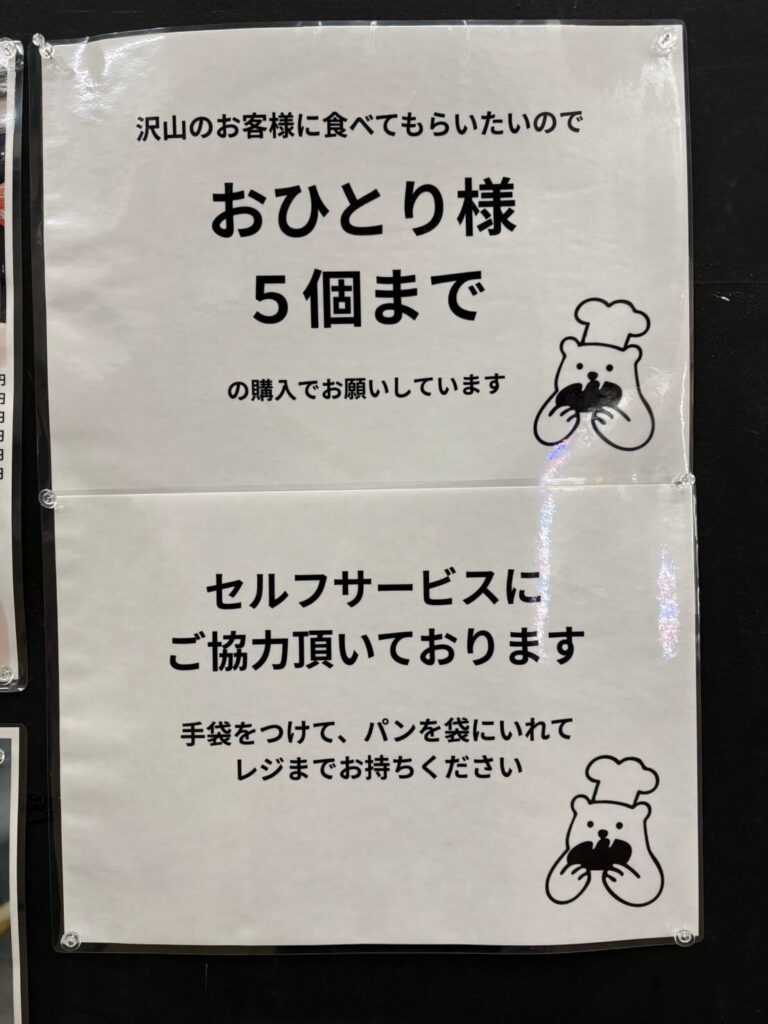 沢山のお客様に食べてもらいたいので
おひとり様
５個まで
の購入でお願いしています
セルフサービスに
ご協力頂いております
手袋をつけて、パンを袋にいれて
レジまでお持ちください
円
円
円
円
円
円